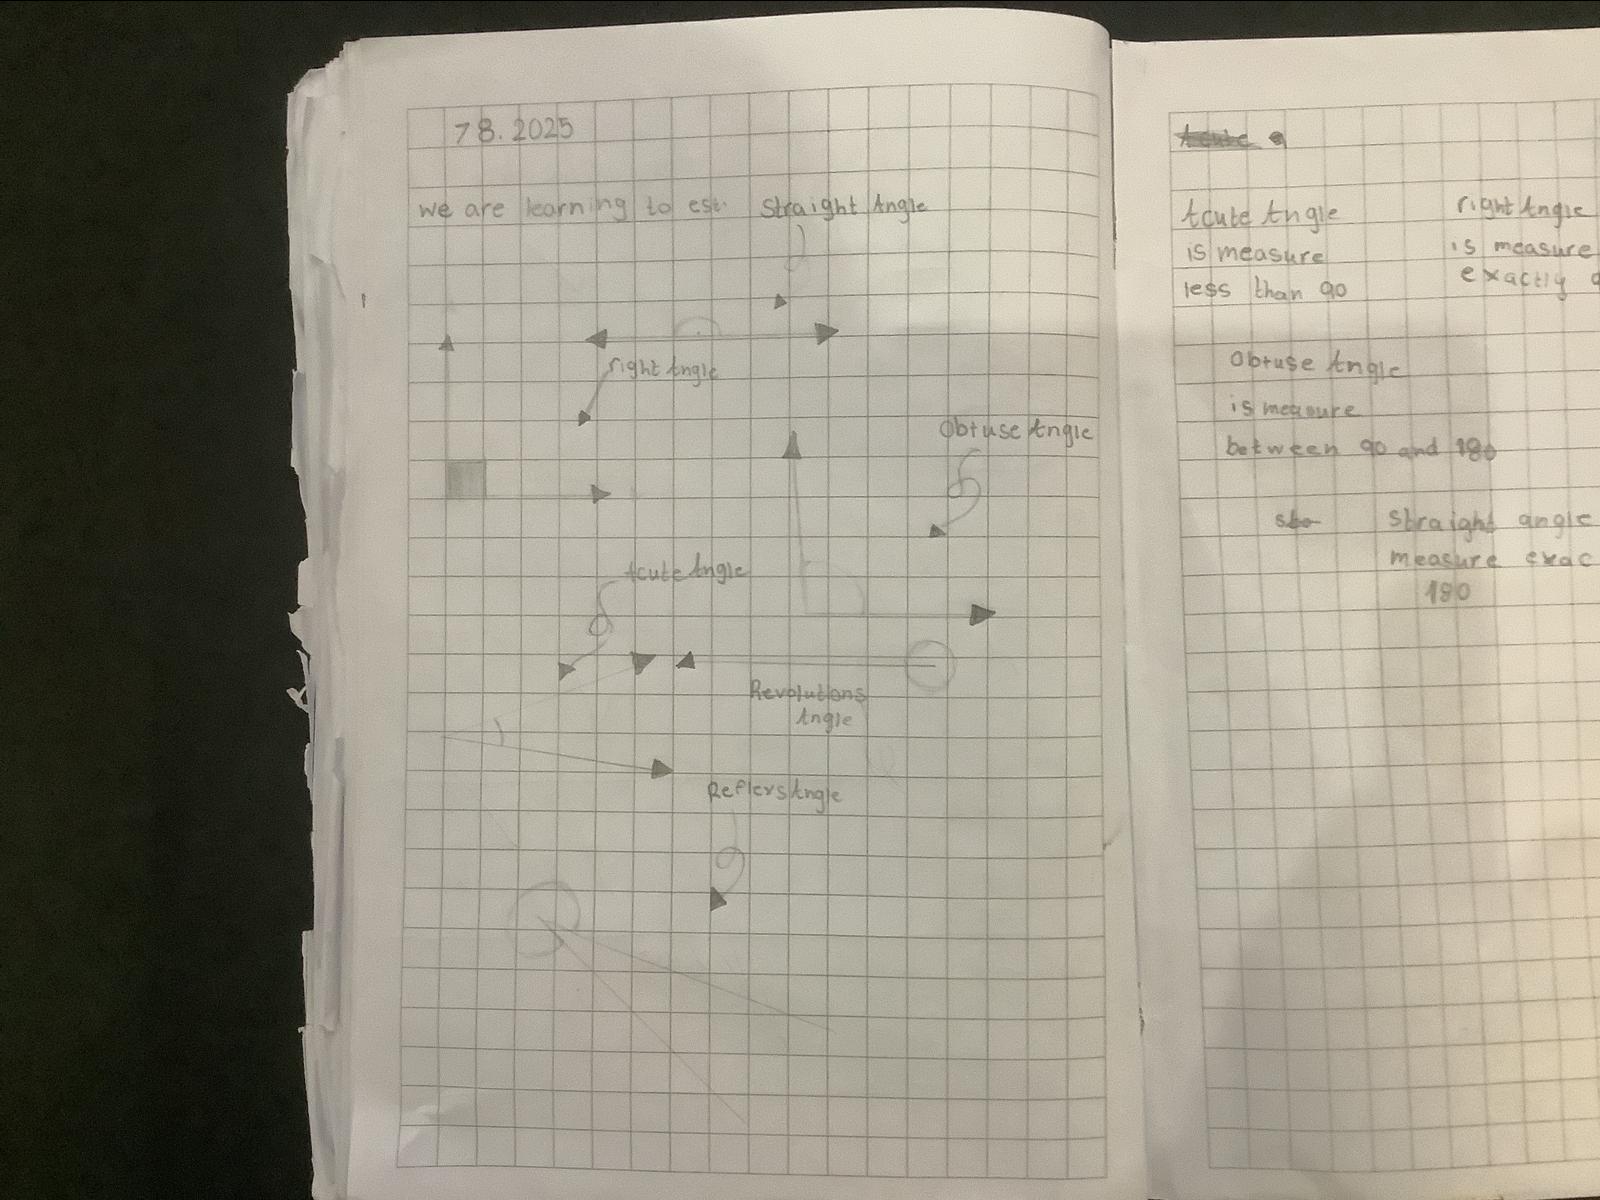 78.2025
we are learning to est. Straight Angle
right Angle
Obtuse Angle
Acute Angle
Revolutions
Angle
Reflers Angle
Acute Angle
is measure
less than 90
right Angle
is measure
exactly
Obtuse Angle
is measure
between 90 and 180
Straight angle
measure exac
180